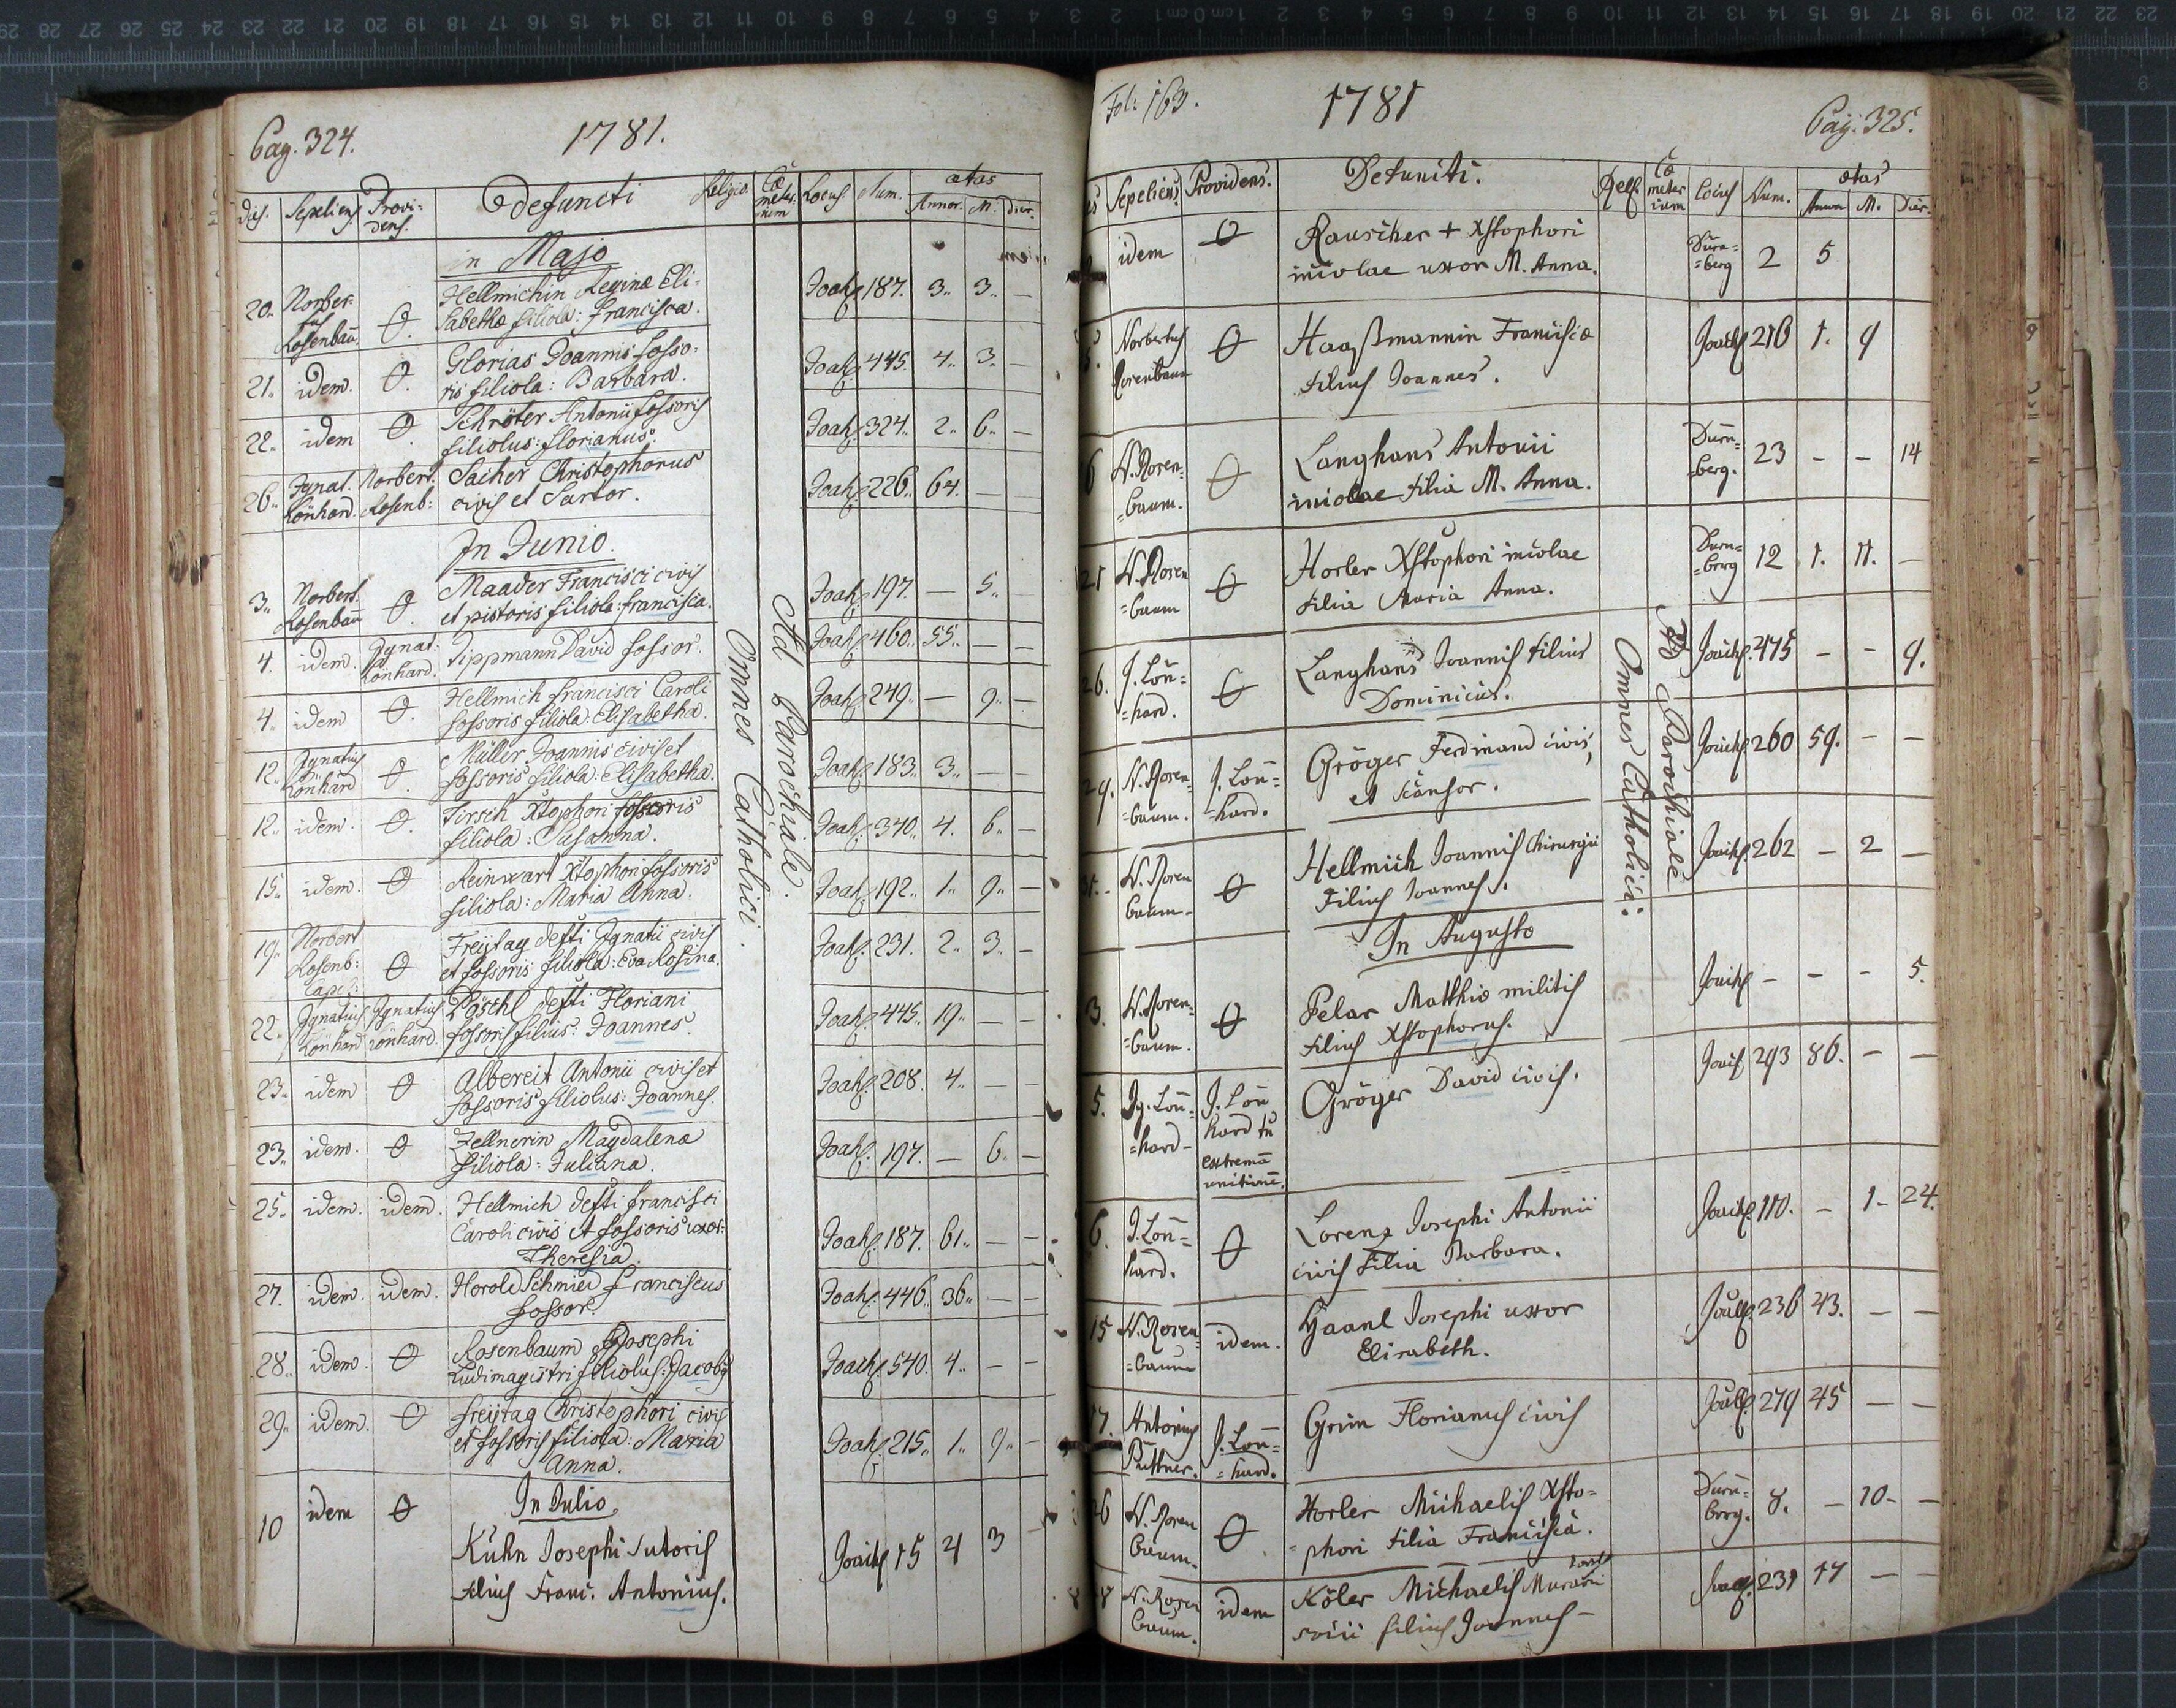 Pag. 324.
1781.
Dies. Sepeliens Providens. Defuncti Religio. Cœmeterium Locus. Num. ætas Annor. M. Dier.
in Majo
20. Norbertus Rosenbaū. O. Hellmichin Reginæ Eli-
sabethæ filiola: Francisca. Joah. 187. 3. 3. —
21. idem. O. Glorias Joannis fosso-
ris filiola: Barbara. Joah. 445. 4. 3. —
22. idem O. Schröter Antonii fossoris
filiolus: Florianus. Joah. 324. 2. 6. —
26. Ignat. Lönhard. Norbert. Rosenb: Sacher Christophorus
civis et Sartor. Joah. 226. 64. —
In Junio.
3. Norbert. Rosenbaū O. Maader Francisci civis
et pistoris filiola: francisca. Joah. 197. — 5. —
4. idem. Ignat: Lönhard. Tippmann David fossor. Joah. 460. 55. — —
4. idem O. Hellmich francisci Caroli
fossoris filiola: Elisabetha. Joah. 249. — 9. —
12. Ignatius Lönhard O. Müller Joannis civis et
fossoris filiola: Elisabetha. Joah. 183. 3. —
12. idem. O. Tirsch Xtophori fossoris
filiola: Susanna. Joah. 340. 4. 6. —
15. idem. O Reinwart Xtophori fossoris
filiola: Maria Anna. Joah. 192. 1. 9. —
19. Norbert Rosenb: Capel: O Freijtag defti Ignatii civis
et fossoris filiola: Eva Rosina. Joah. 231. 2. 3. —
22. Ignatius Lönhard Ignatius Lönhard. Pöschl defti Floriani
fossoris filius: Joannes. Joah. 445. 19. — —
23. idem O Albereit Antonii civis et
fossoris filiolus: Joannes. Joah. 208. 4. — —
23. idem. O Zellnerin Magdalena
filiola: Juliana. Joah. 197. — 6. —
25. idem. idem. Hellmich defti francisci
Caroli civis et fossoris uxor:
Theresia. Joah. 187. 61. — —
27. idem. idem. Herold Schmied franciscus
fossor. Joah. 446. 36. — —
28. idem. O Rosenbaum Josephi
Ludimagistri filiolus: Jacobq Joach. 540. 4. — —
29. idem. O freijtag Christophori civis
et fossoris filiola: Maria
Anna. Joah. 215. 1. 9. —
In Julio.
10 idem O Kühn Josephi Sutoris
filius Franc. Antonius. Joach 15 4 3
Omnes Catholici.
Ad Parochiale.
Fol: 163.
1781
Pag: 325.
Sepeliens Providens. Defuncti. Relig. Cœmeterium Locus Num. ætas Annor M. Dier.
idem O Rauscher + Xstophori
incolae uxor M. Anna. Dürn=
=berg 2 5
5. Norbertus Rosenbaum O Haaßmannin Francisca
filius Joannes. Joach 216 1. 9
6 N. Rosen=
=baum. O Langhans Antonii
incolae filia M. Anna. Dürn=
=berg. 23 - - 14
21 N. Rosen
=baum O Horler Xstophori incolae
filia Maria Anna. Durn=
=berg 12 1. 11. -
26. J. Lön=
=hard. O Langhans Joannis filius
Dominicus. Joach. 475 - - 9.
29. N. Rosen
=baum. J. Lön=
=hard. Gröger Ferdinand civis,
et Scansor. Joach. 260 59. - -
31. N. Rosen
baum. O Hellmich Joannis Chirurgii
Filius Joannes. Joach. 262 - 2 -
In Augusto
3. N. Rosen=
=baum. O Pelar Matthiæ militis
filius Xstophorus. Joach - - - 5.
5. Ig. Lön=
=hard- J. Lön
hard
extrema
unctione. Gröger David civis. Joach 293 86. - -
6. J. Lön=
hard. O Lorenz Josephi Antonii
civis filia Barbara. Joach. 110. - 1- 24.
15 N. Rosen=
=baum idem. Haanl Josephi uxor
Elisabeth. Joach. 236 43. - -
17. Antonius
Püttner. J. Lön=
=hard. Grim Florianus civis Joach. 279 45 - -
26 N. Rosen
baum. O Horler Michaelis Xsto=
=phori filia Francisca. Dürn=
berg. 8. - 10- -
N. Rosen
baum. idem Köler Michaelis Murarii
socii filius Joannes - Joach. 231 17 - -
Omnes Catholici.
Ad Parochiale